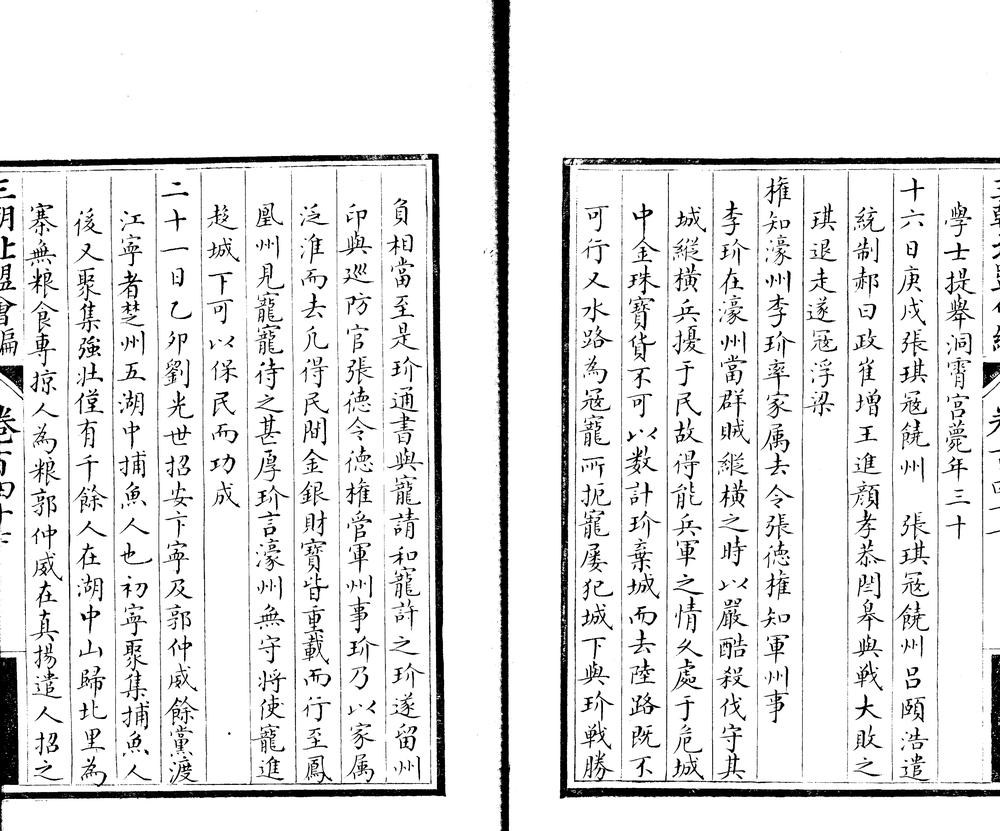 學士提舉洞霄宮薨年三十
十六日庚戌張琪冦饒州　張琪冦饒州吕頤浩遣
統制郝曰政崔增王進顔孝恭閆皋與戰大敗之
琪退走遂冦浮梁
㩲知濠州李玠率家属去令張德㩲知軍州事
李玠在濠州當群賊縱横之時以嚴酷殺伐守其
城縱横兵擾于民故得能兵軍之情久處于危城
中金珠寶貨不可以数計玠棄城而去陸路既不
可行又水路為冦寵所扼寵屡犯城下與玠戰勝
負相當至是玠通書與寵請和寵許之玠遂留州
印與巡防官張德令德㩲管軍州事玠乃以家属
泛淮而去凢得民間金銀財寶皆重載而行至鳳
凰州見寵寵待之甚厚玠言濠州無守将使寵進
趍城下可以保民而功成
二十一日乙卯劉光世招安卞寧及郭仲威餘黨渡
江寧者楚州五湖中捕魚人也初寧聚集捕魚人
後又聚集強壯僅有千餘人在湖中山歸北里為
寨無粮食專掠人為粮郭仲威在真揚遣人招之
三朝北盟會編　卷一百四十七